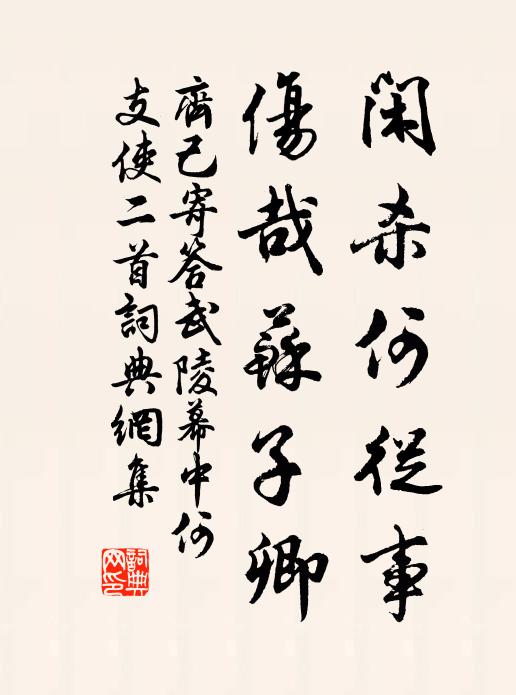 闲杀何从事
傷哉蘇子卿
齊己寄答武陵幕中何
支使二首詞典網集
詞典网印